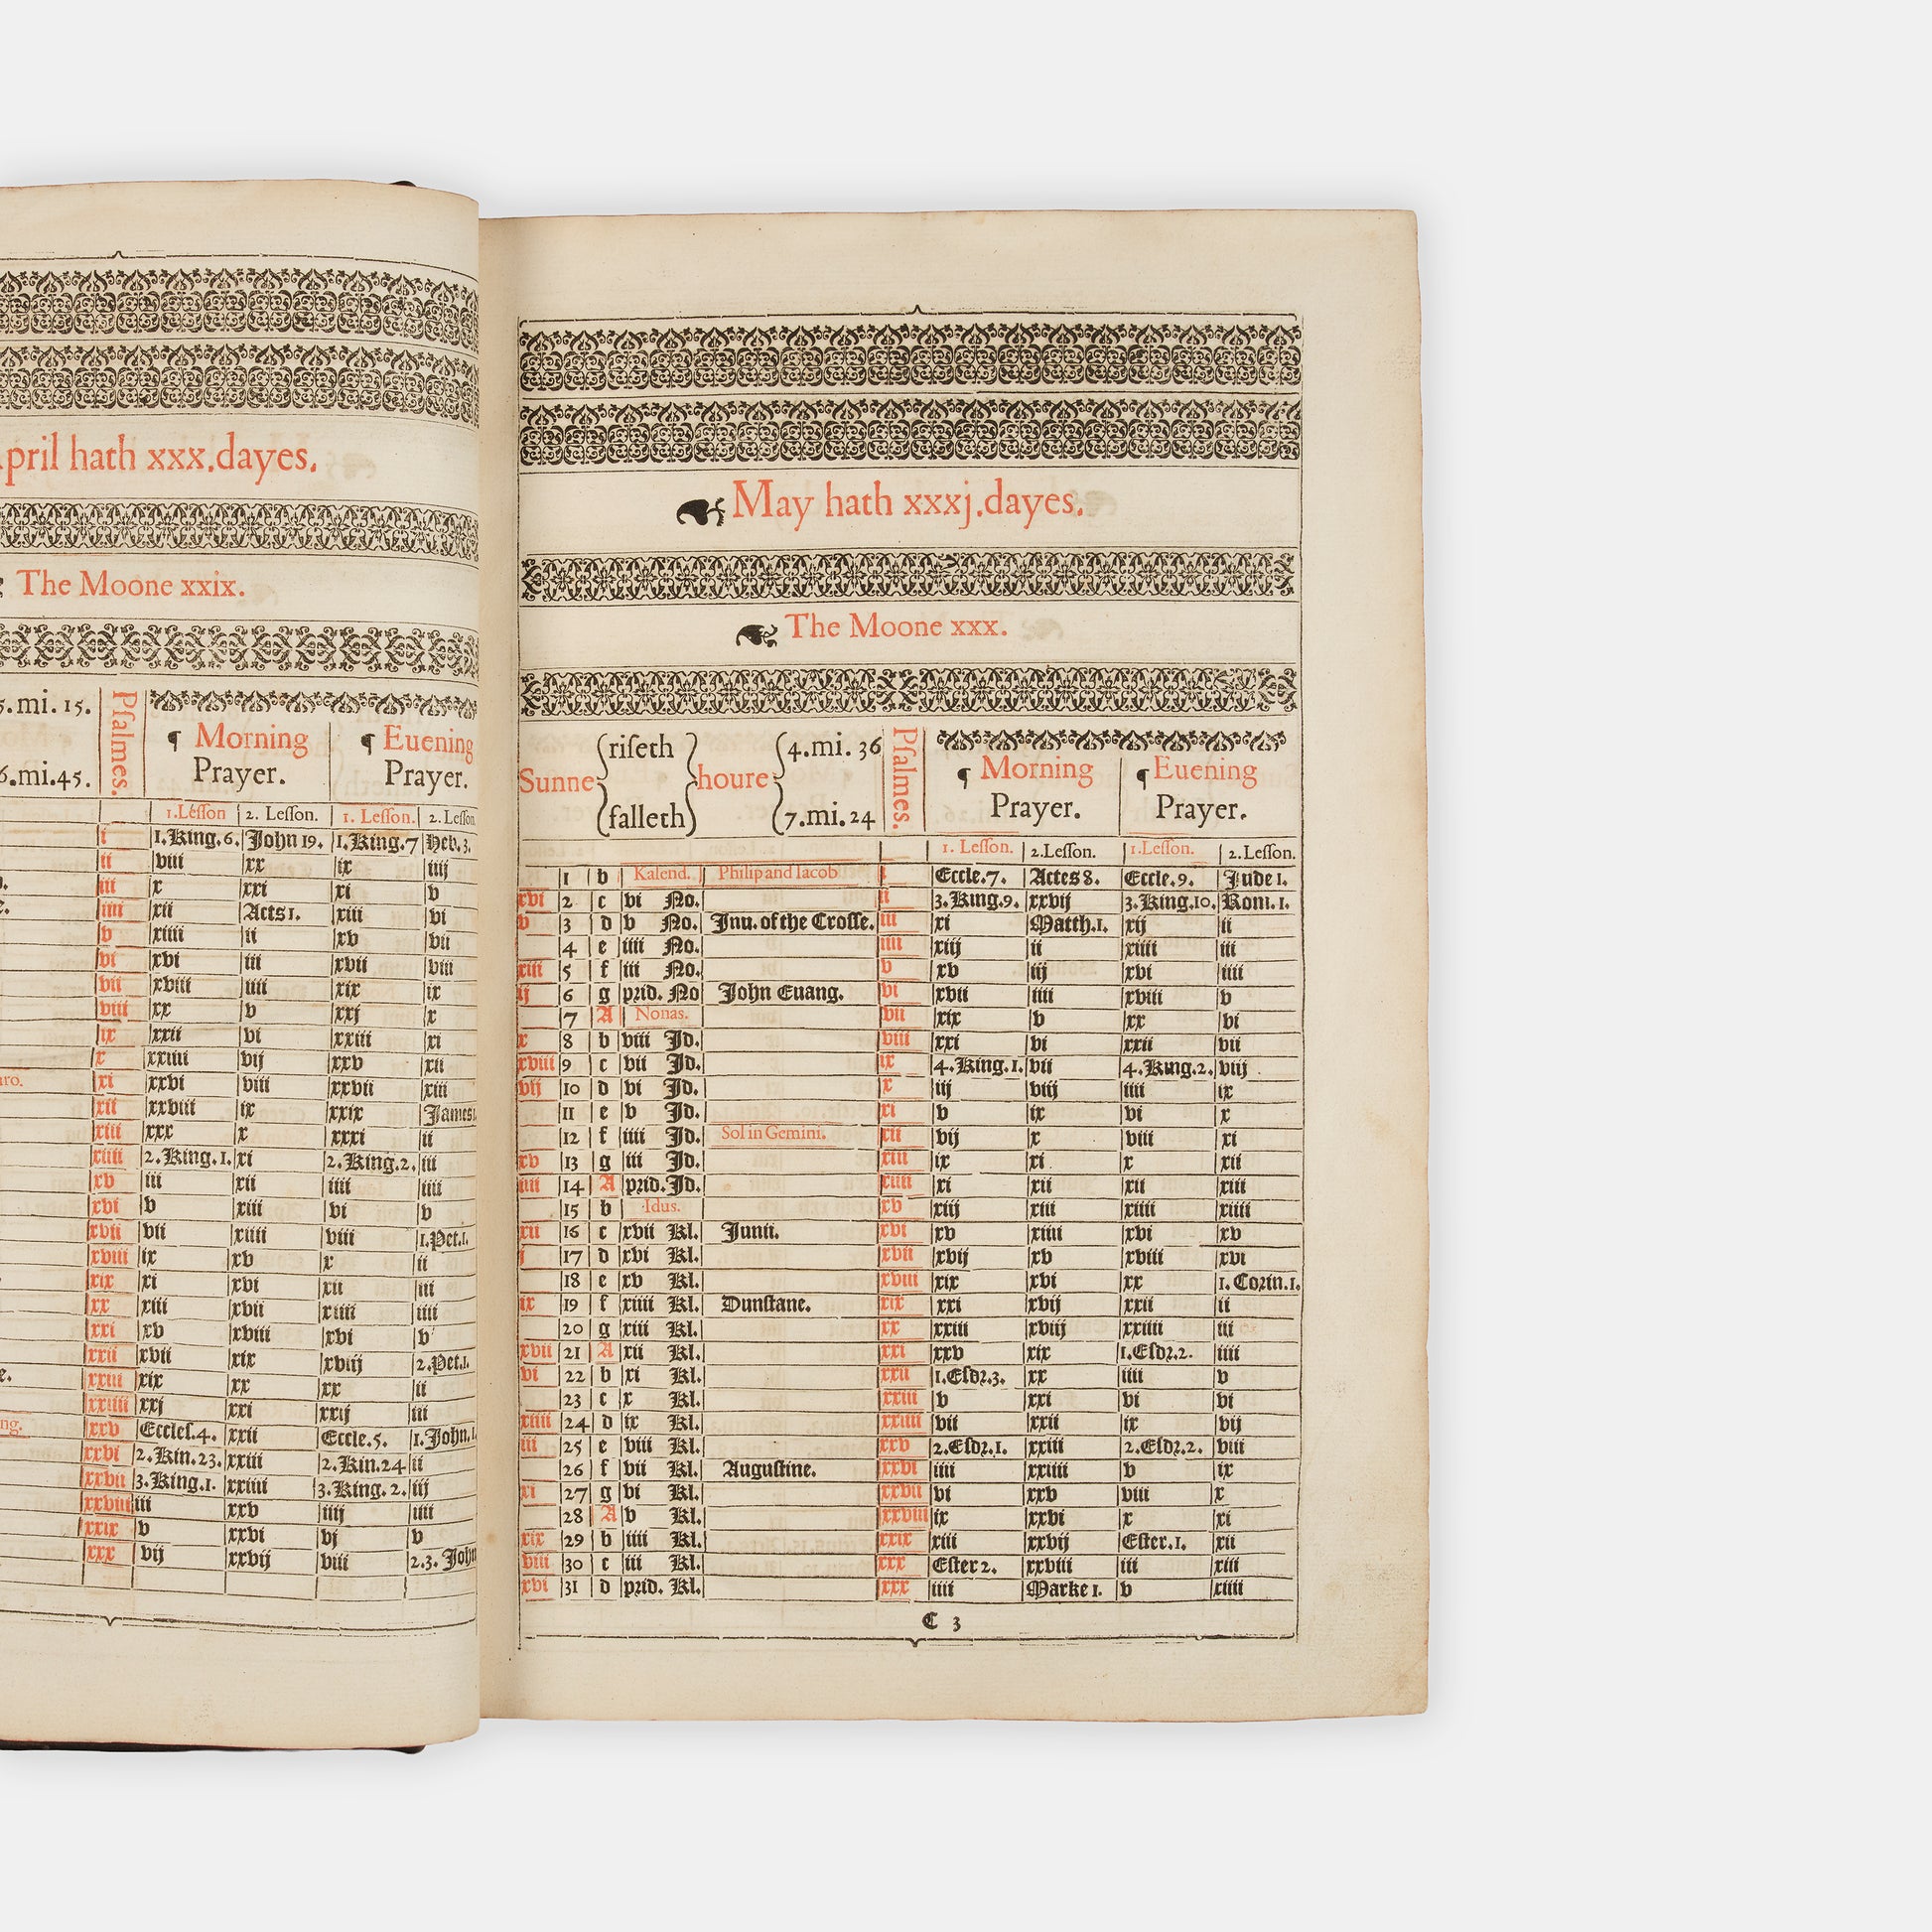 pril hath xxx.dayes.
The Moone xxix.
5.mi. 15.
6.mi.45.
Pſalmes.
¶ Morning Prayer.
¶ Euening Prayer.
1.Leſſon 2. Leſſon. 1. Leſſon. 2.Leſſon
i 1.King.6. John 19. 1.King.7 Heb.3.
ii viii xx ix iiij
iii x xxi xi v
iiii xii Acts1. xiii vi
v xiiii ii xv vii
vi xvi iii xvii viii
vii xviii iiii xix ix
viii xx v xxj x
ix xxii vi xxiii xi
x xxiiii vij xxv xii
ro. xi xxvi viii xxvii xiii
xii xxviii ix xxix James1
xiii xxx x xxxi ii
xiiii 2.King.1. xi 2.King.2. iii
xv iii xii iiii iiii
xvi v xiii vi v
xvii vii xiiii viii 1.Pet.1.
xviii ix xv x ii
xix xi xvi xii iii
xx xiii xvii xiiii iiii
xxi xv xviii xvi v
xxii xvii xix xviij 2.Pet.1.
xxiii xix xx xx ii
xxiiii xxj xxi xxij iii
ng. xxv Eccleſ.4. xxii Eccle.5. 1.John.1.
xxvi 2.Kin.23. xxiii 2.Kin.24 ii
xxvii 3.King.1. xxiiii 3.King.2. iij
xxviii iii xxv iiij iiii
xxix v xxvi vj v
xxx vij xxvij viii 2.3. John
May hath xxxj.dayes.
The Moone xxx.
Sunne riſeth falleth houre 4.mi. 36 7.mi.24
Pſalmes.
¶ Morning Prayer.
¶ Euening Prayer.
1. Leſſon. 2.Leſſon. 1.Leſſon. 2.Leſſon.
1 b Kalend. Philip and Iacob i Eccle.7. Actes 8. Eccle.9. Jude 1.
xvi 2 c vi No. ii 3.King.9. xxvij 3.King.10. Rom.1.
v 3 d v No. Inu. of the Croſſe. iii xi Matth.1. xij ii
4 e iiii No. iiii xiij ii xiiii iii
xiii 5 f iii No. v xv iij xvi iiii
ij 6 g prid. No John Euang. vi xvii iiii xviii v
7 A Nonas. vii xix v xx vi
x 8 b viii Id. viii xxi vi xxii vii
xviii 9 c vii Id. ix 4.King.1. vii 4.King.2. viij
vij 10 d vi Id. x iij viij iiii ix
11 e v Id. xi v ix vi x
12 f iiii Id. Sol in Gemini. xii vij x viii xi
xv 13 g iii Id. xiii ix xi x xii
iiii 14 A prid. Id. xiiii xi xii xii xiii
15 b Idus. xv xiij xiii xiiii xiiii
xii 16 c xvii Kl. Junii. xvi xv xiiii xvi xv
i 17 d xvi Kl. xvii xvij xv xviii xvi
18 e xv Kl. xviii xix xvi xx 1. Corin.1.
ix 19 f xiiii Kl. Dunſtane. xix xxi xvij xxii ii
20 g xiii Kl. xx xxiii xviij xxiiii iii
xvii 21 A xii Kl. xxi xxv xix 1.Eſdr.2. iiii
vi 22 b xi Kl. xxii 1.Eſdr.3. xx iiii v
23 c x Kl. xxiii v xxi vi vi
xiiii 24 d ix Kl. xxiiii vii xxii ix vij
iii 25 e viii Kl. xxv 2.Eſdr.1. xxiii 2.Eſdr.2. viii
26 f vii Kl. Auguſtine. xxvi iiii xxiiii v ix
xi 27 g vi Kl. xxvii vi xxv viii x
28 A v Kl. xxviii ix xxvi x xi
xix 29 b iiii Kl. xxix xiii xxvij Eſter.1. xii
viii 30 c iii Kl. xxx Eſter 2. xxviii iii xiii
xvi 31 d prid. Kl. xxx iiii Marke 1. v xiiii
C 3